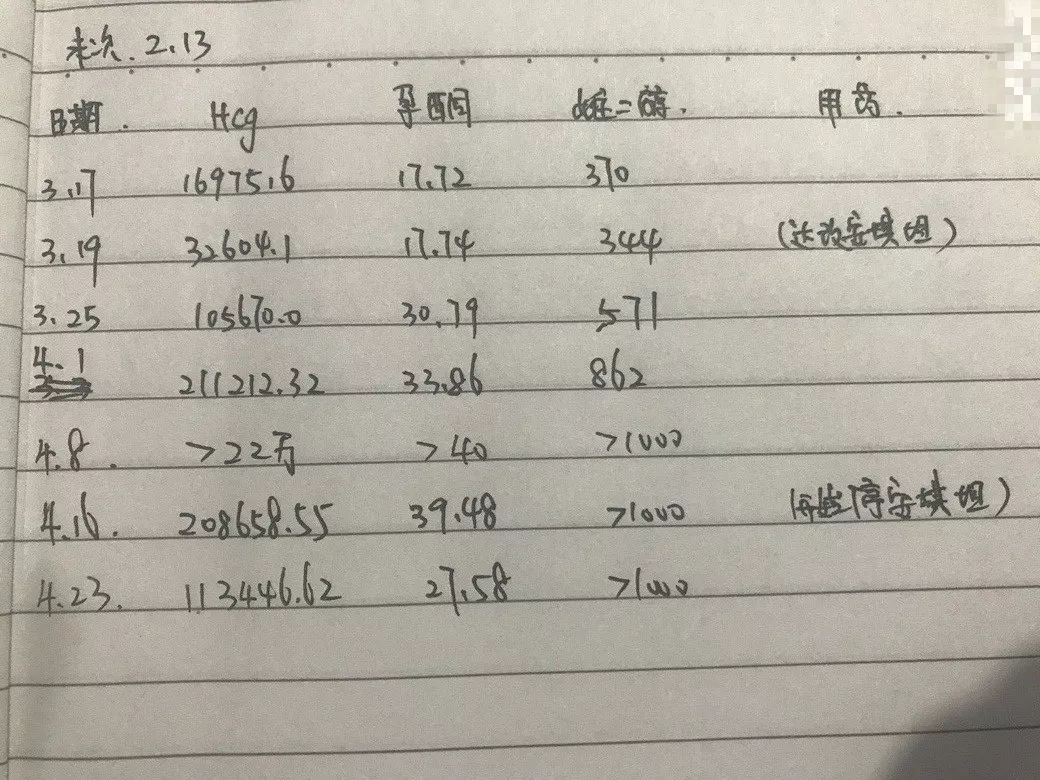 末次. 2.13
日期. Hcg 孕酮 雌二醇. 用药.
3.17 16975.6 17.72 370
3.19 32604.1 17.74 344 (达芙安琪坦)
3.25 105670.0 30.79 571
4.1 211212.32 33.86 862
4.8. >22万 >40 >1000
4.16. 208658.55 39.48 >1000 (停安琪坦)
4.23. 113446.62 27.58 >1000